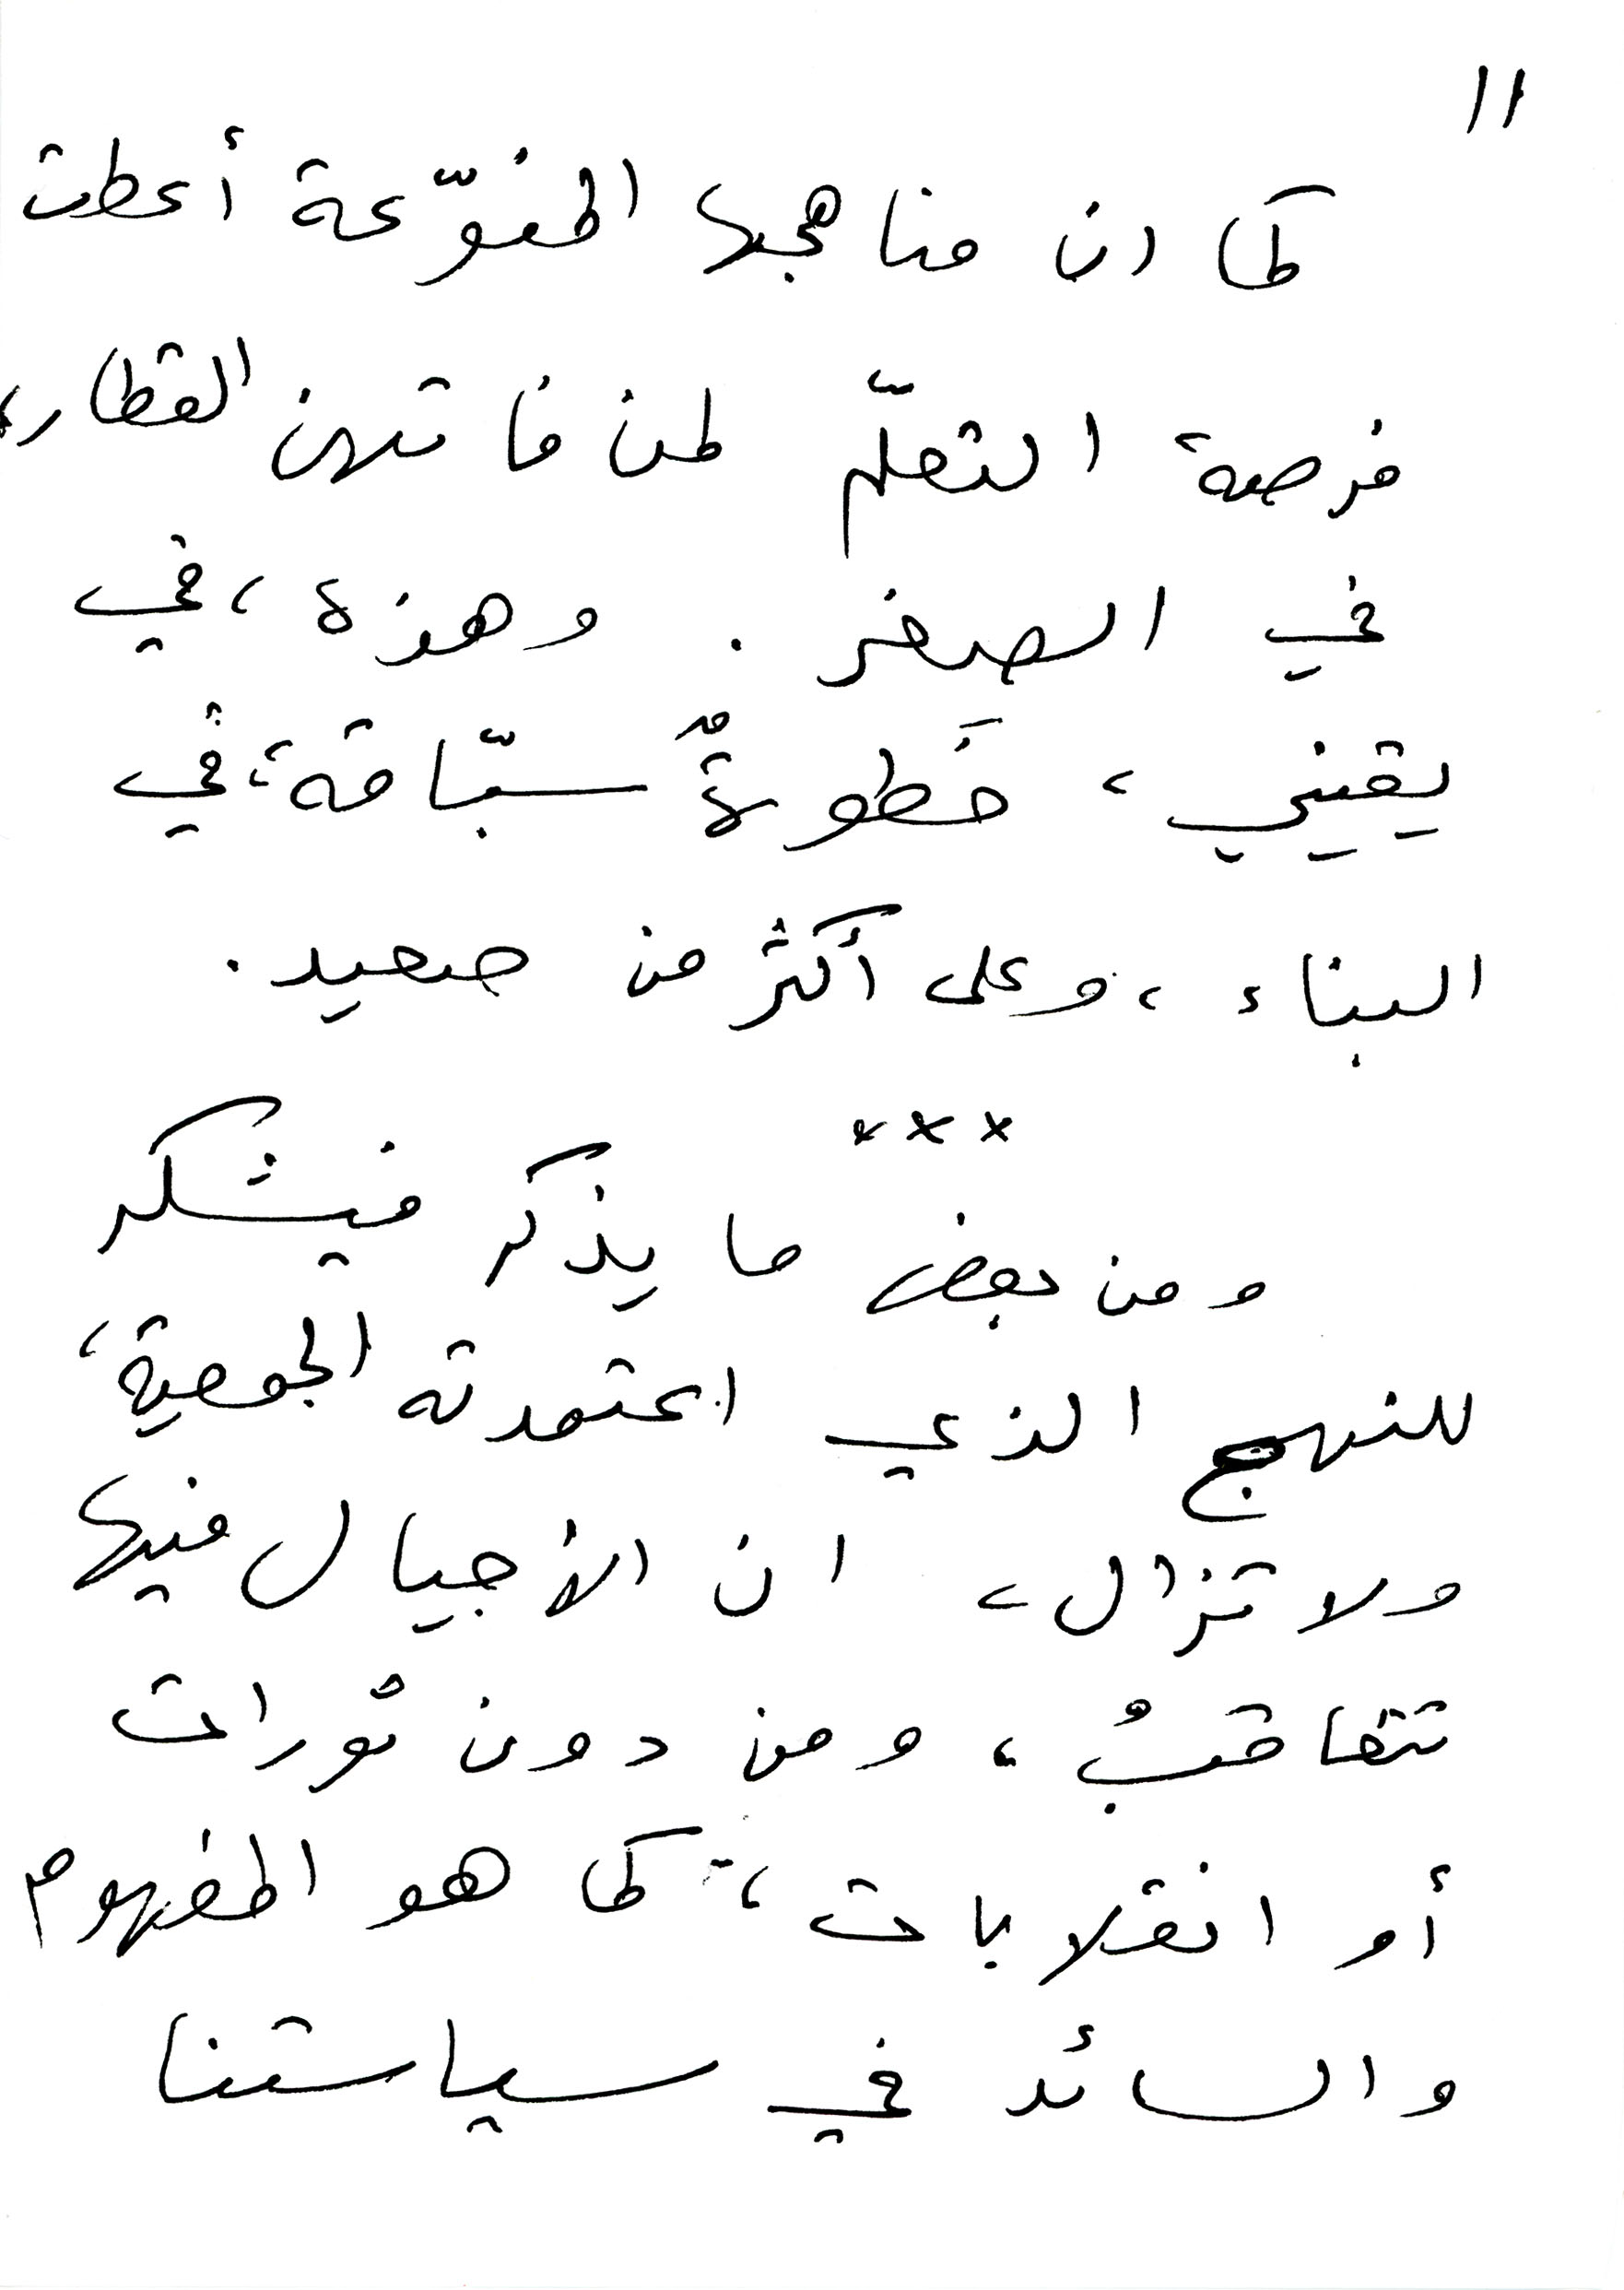 ١١
كما ان مناهجها المنوّعة أعطت
فرصة التعلّم لمن فاتهن القطار،
في الصغر. وهذه، في
يقيني، خَطوةٌ سبّاقة، في
البناء، وعلى أكثر من صعيد.
***
ومن بعض ما يذكر فيشكر
للنهج الذي اعتمدته الجمعية،
ولا تزال، ان الأجيال فيها
تتعاقبُ، ومن دون ثورات
أو انقلابات، كما هو المفهوم
والسائد في سياستنا